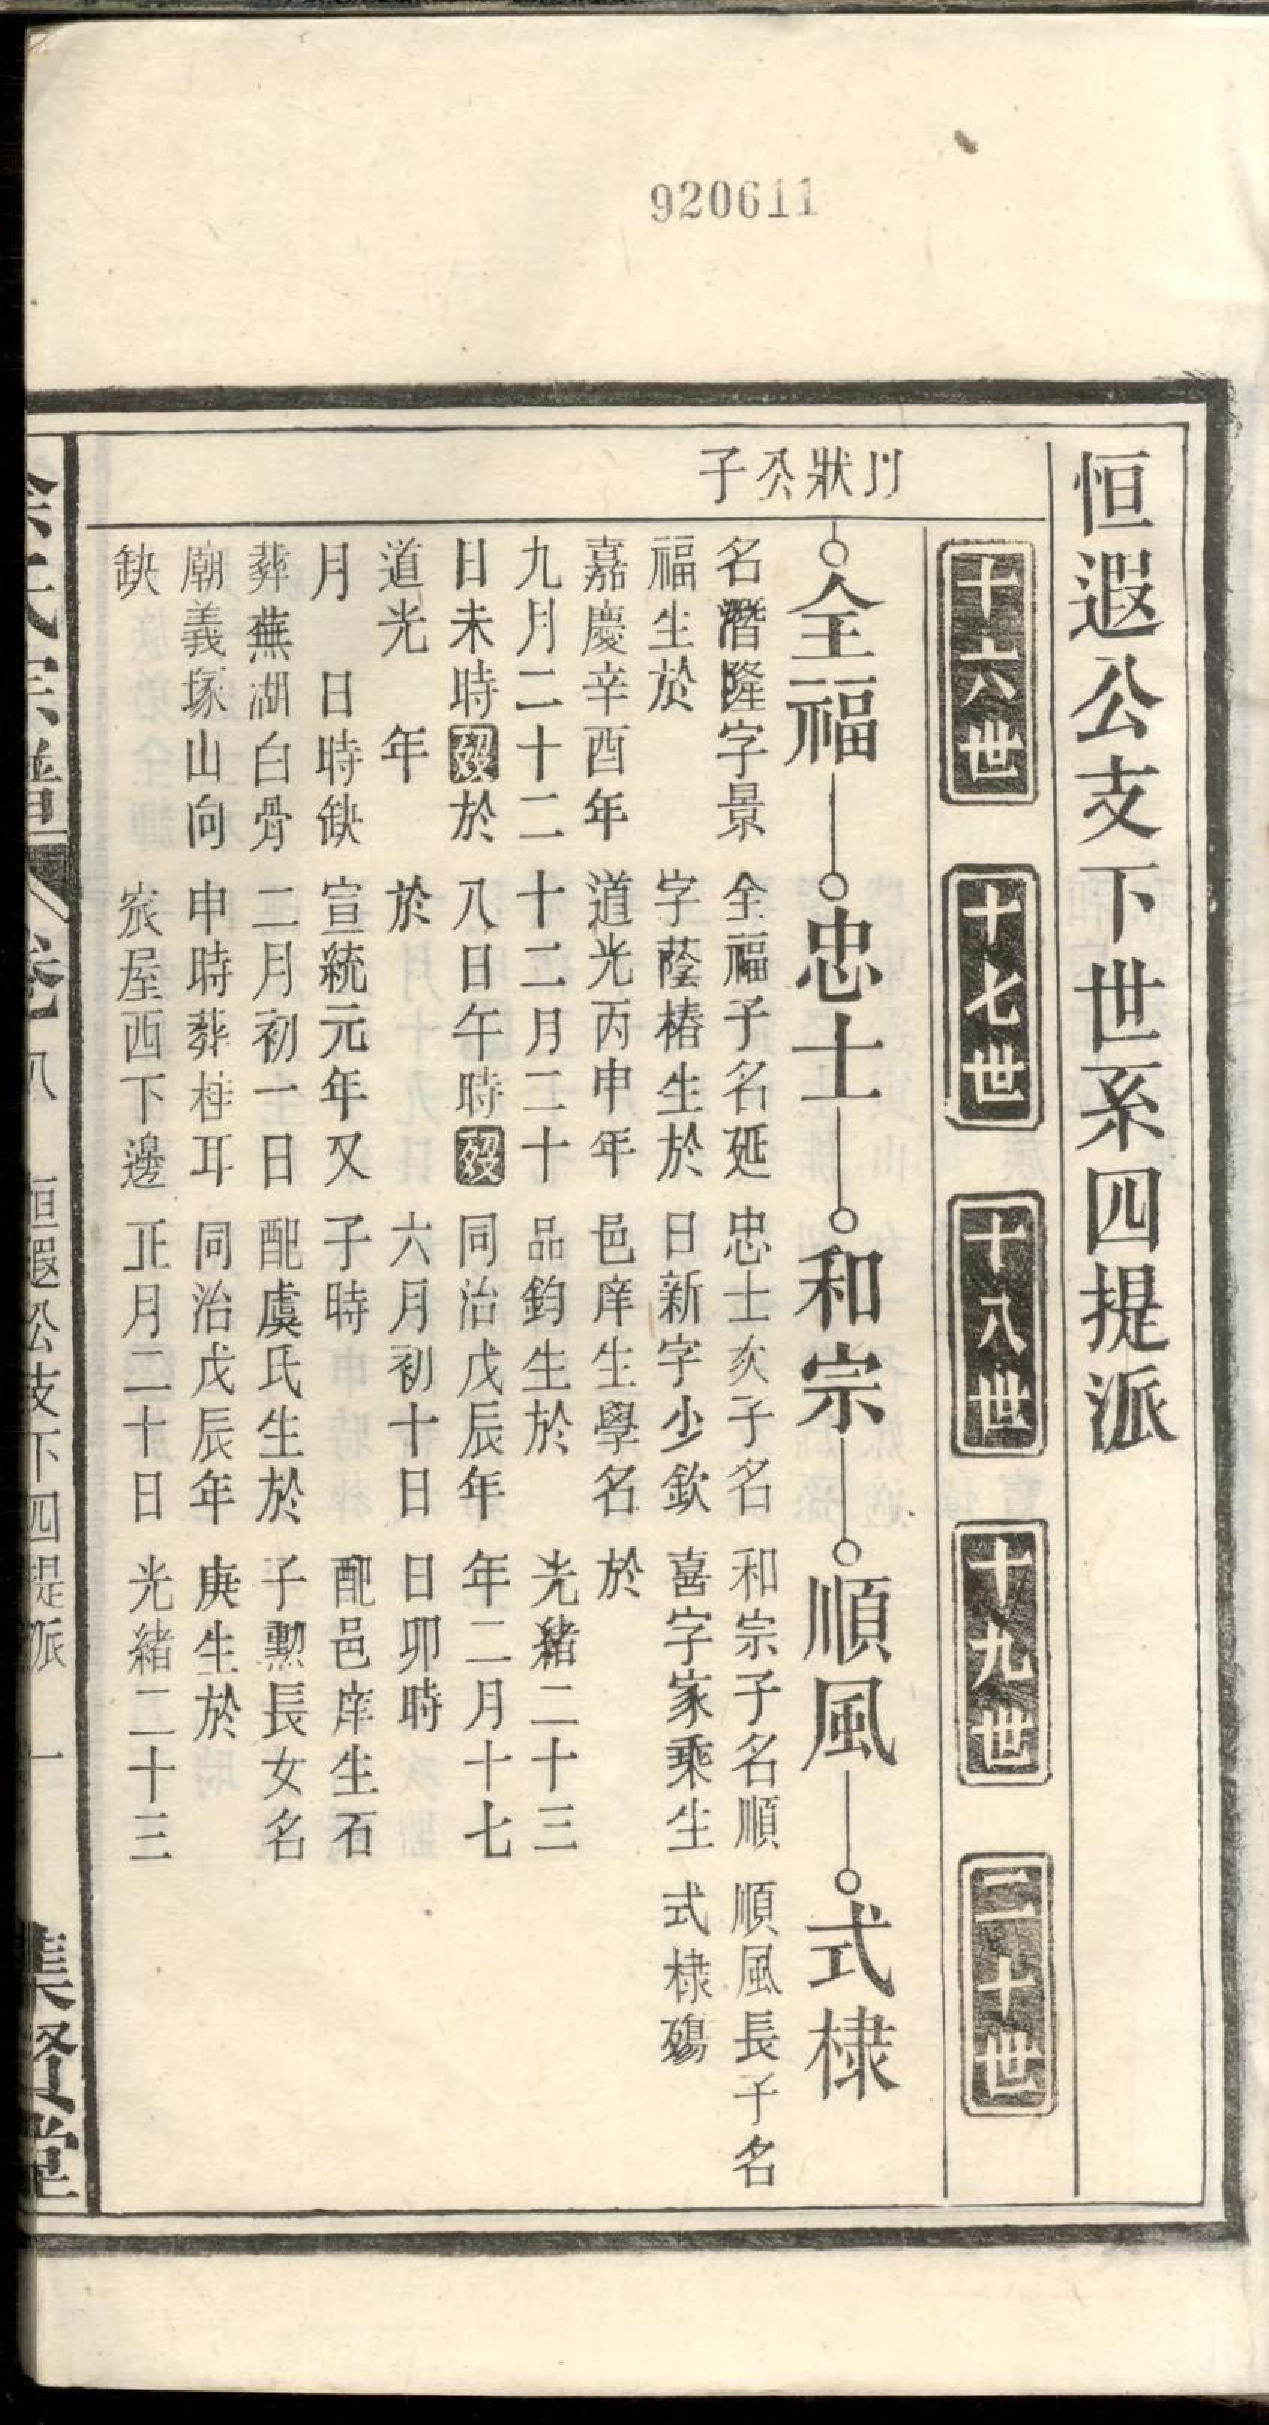 920611
恒遐公支下世系四提派
十六世
十七世
十八世
十九世
二十世
川狀公子
全福
忠士
和宗
順風
式棣
名潛隆字景
福生於
嘉慶辛酉年
九月二十二
日未時歿於
道光 年
月 日時缺
葬蕪湖白骨
廟義塚山向
缺
全福子名延
字蔭椿生於
道光丙申年
十二月二十
八日午時歿
於
宣統元年又
二月初一日
申時葬桂耳
冡屋西下邊
忠士次子名
日新字少欽
邑庠生學名
品鈞生於
同治戊辰年
六月初十日
子時
配虞氏生於
同治戊辰年
正月二十日
和宗子名順
喜字家乘生
於
光緒二十三
年二月十七
日卯時
配邑庠生石
子勳長女名
庚生於
光緒二十三
順風長子名
式棣殤
氏宗譜 卷八 恒遐公支下四提派 一 集賢堂